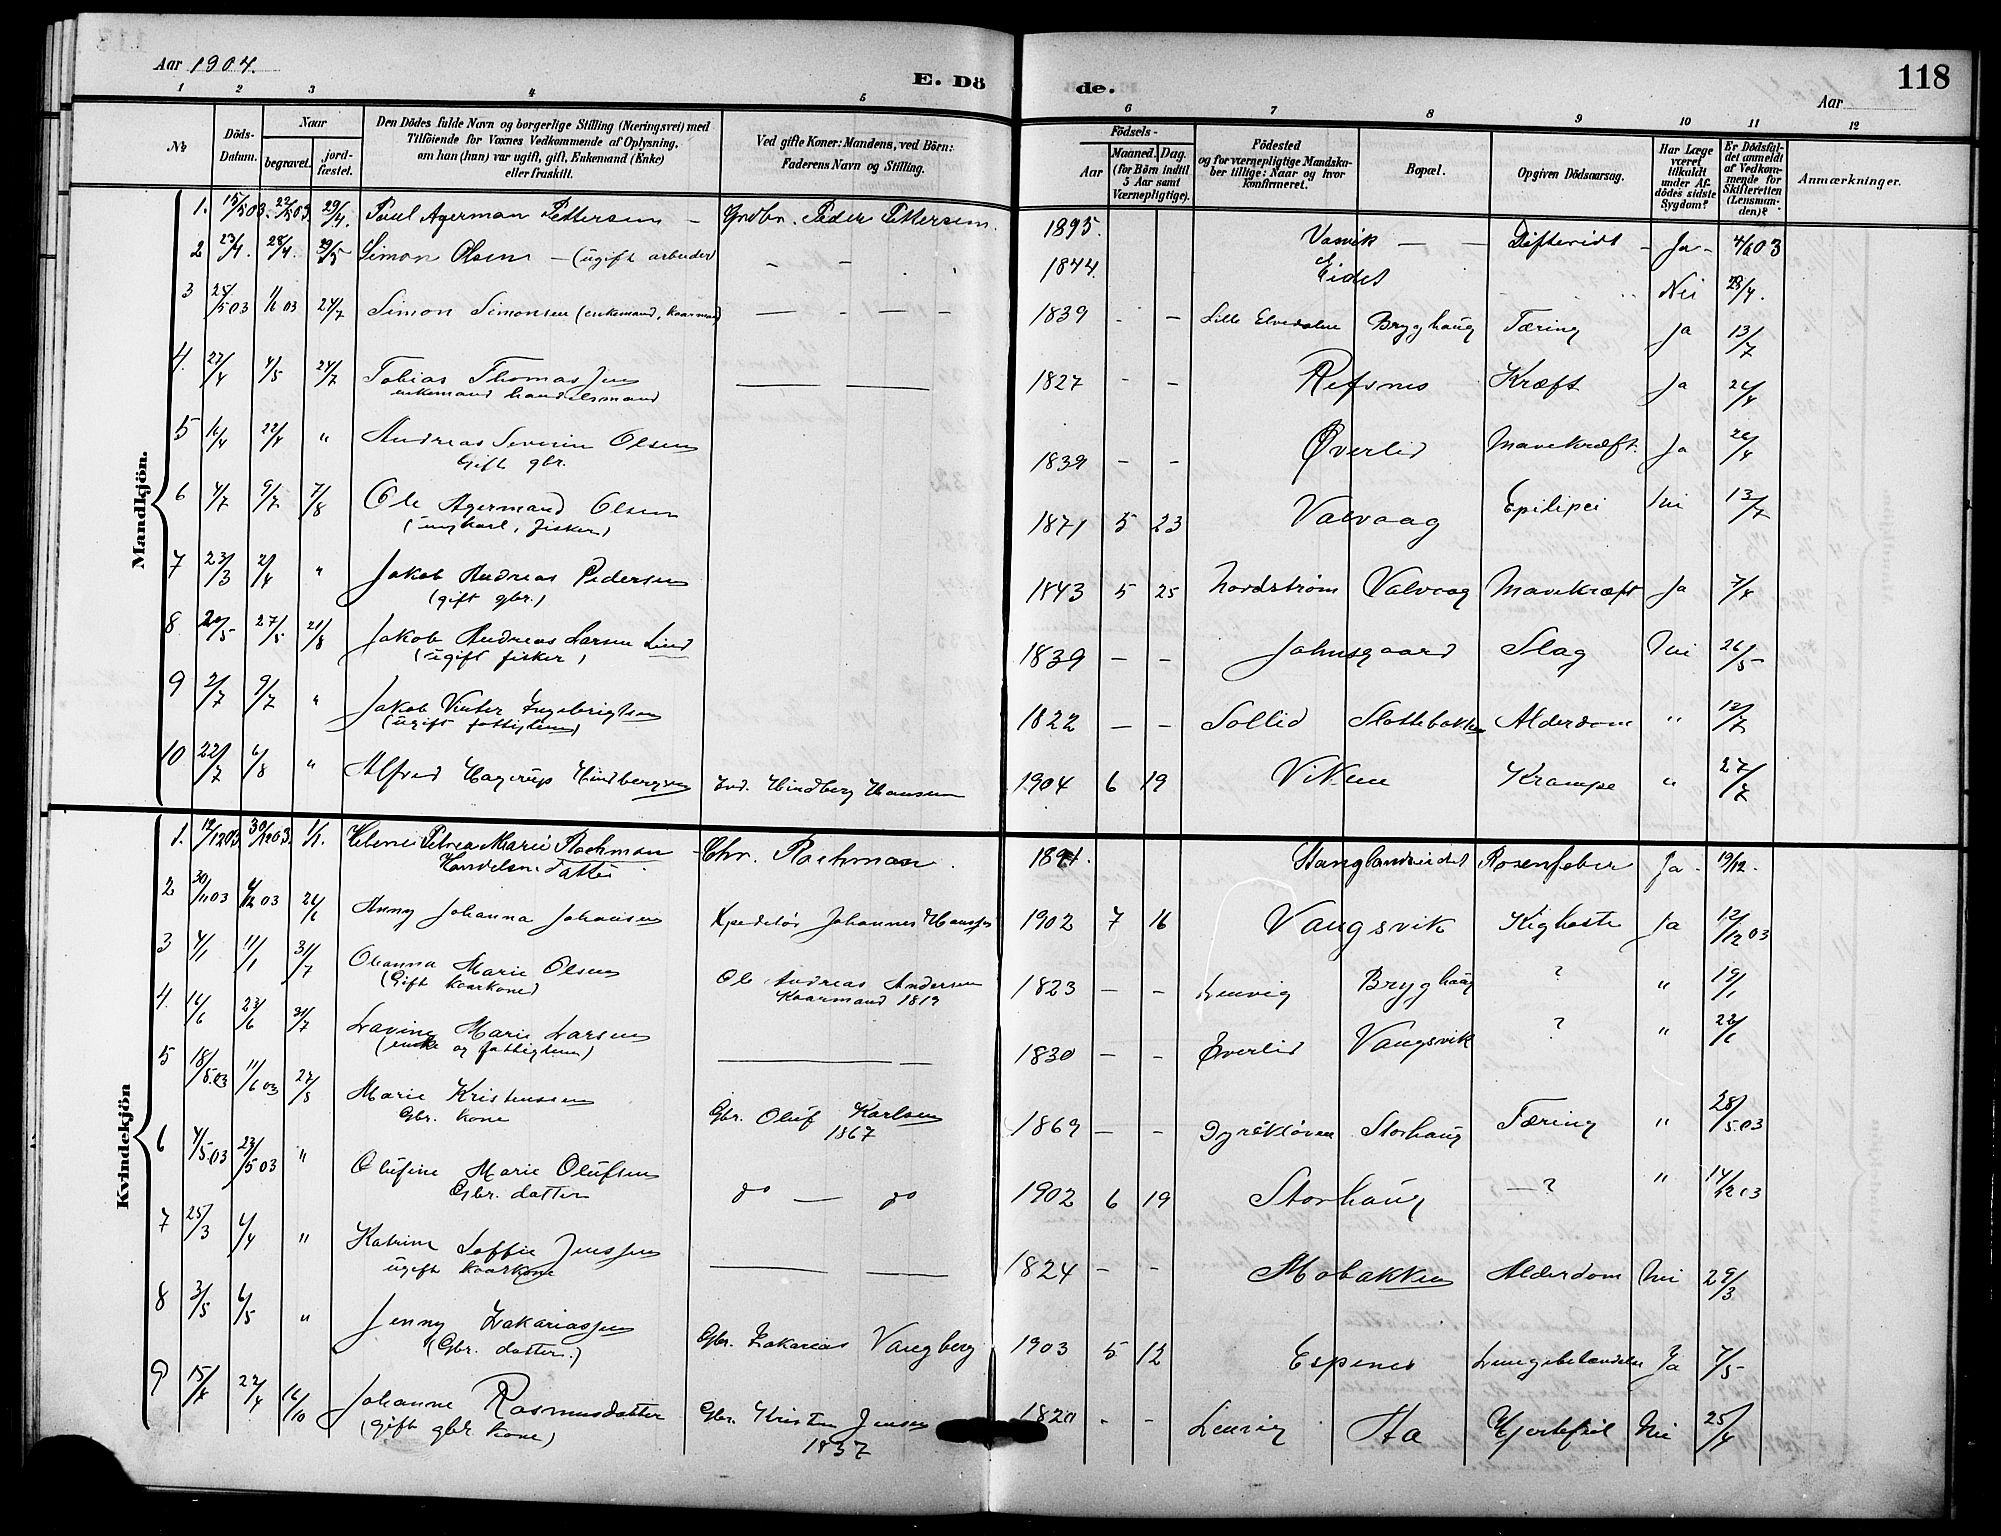 Aar 1904.
E. Dö
de.
118
Aar
1 2 3 4 5 6 7 8 9 10 11 12
No
Döds-Datum.
Naar
begravet.
jord-fæstet.
Den Dödes fulde Navn og borgerlige Stilling (Næringsvei) med
Tilföiende for Voxnes Vedkommende af Oplysning,
om han (hun) var ugift, gift, Enkemand (Enke)
eller fraskilt.
Ved gifte Koner: Mandens, ved Börn:
Faderens Navn og Stilling.
Födsels-
Aar
Maaned. Dag.
(for Börn indtil
5 Aar samt
Værnepligtige).
Födested
og for værnepligtige Mandska-
ber tillige: Naar og hvor
konfirmeret.
Bopæl.
Opgiven Dödsaarsag.
Har Læge
været
tilkaldt
under Af-
dödes sidste
Sygdom?
Er Dödsfal-
det anmeldt
af Vedkom-
mende for
Skifteretten
(Lensman-
den)?
Anmærkninger.
Mandkjön.
1. 15/5 03. 22/5 03. 29/4. Poul Agerman Pettersen — Grdbr. Peder Pettersen. 1895. Vasvik — — Difterit — Ja —
2 23/4. 28/4. 29/5 Simon Olsen — (ugift arbeider) — — 1844. Eidet Nei 28/4.
3 25/5 03 1/6 03 24/7 Simon Simonsen (enkemand, kaarmand) — — — — 1839 — — Lille Elvedalen Bryghaug Tæring Ja 13/7
4. 27/4 4/5 24/7 Tobias Thomassen
enkemand handelsmand — — 1827 — — Refsnes Kræft Ja 26/4
5 16/4 22/4 " Andreas Severin Olsen
Gift gbr. 1839 — — Øverlid Mavekræft. Ja 26/4
6 4/7 9/7 7/8 Ole Agermand Olsen
(ungkarl, fisker) 1871 5 23 Valvaag Epilipsi Nei 13/7
7 23/3 2/4 " Jakob Andreas Pedersen
(gift gbr.) 1843 5 25 Nordstrøm Valvaag Mavekræft Ja 7/4
8 20/5 27/5 21/8 Jakob Andreas Larsen Lind
(ugift fisker) 1839 — — Johnsgaard Slag Nei 26/5
9 2/7 9/7 " Jakob Vinter Ingebrigtsen
(ugift fattiglem) 1822 — — Sollid Slottebakken Alderdom " 12/7
10 22/7 6/8 " Alfred Hagerup Hindbergsen Ind. Hindberg Hansen 1904 6 19 Viken Krampe " 27/7
Kvindekjön
1. 12/12 03. 30/12 03. 1/1. Helene Petrea Marie Rochman
Handelsm. Datter — Chr. Rochman. Stanglandseidet Rosenfeber Ja — 19/12.
2 30/11 03 4/12 03 26/6 Anny Johanna Johansen Expeditør Johannes Hanssen 1902 7 16 Vangsvik Kighoste Ja 12/12 03
3 4/1 11/1 31/7 Olianna Marie Olsen
(Gift kaarkone) Ole Andreas Andersen
Kaarmand 1819 1823 — — Lenvig Bryghaug ? " 19/1
4. 16/6 23/6 31/7 Lavine Marie Larsen
(enke og fattiglem) — — 1830 — — Øverlid Vangsvik ? " 22/6
5 18/5 03 11/6 03 27/5 Marie Kristenssen
Gbr. kone Gbr. Oluf Karlsen
1867 1869 — — Storhaug Tæring " 28/5 03
6 4/5 03 23/5 03 " Olufine Marie Olufsen
Gbr. datter do — do 1902 6 19 Storhaug — ? "
7 25/3 4/4 " Katrine Soffie Jenssen
ugift kaarkone — — 1824 — — Mobakken Alderdom Nei 29/3
8 3/5 6/5 " Jenny Zakariassen
(Gbr. datter.) Gbr. Zakarias Vangberg 1903 5 12 Espenes Lungebetændelse Ja 7/5
9 15/4 22/4 16/10 Johanne Rasmusdatter
(gift gbr. kone) Gbr. Kristen Jensen
1837 1820 — — Lenvig Hjertefeil Nei 25/4